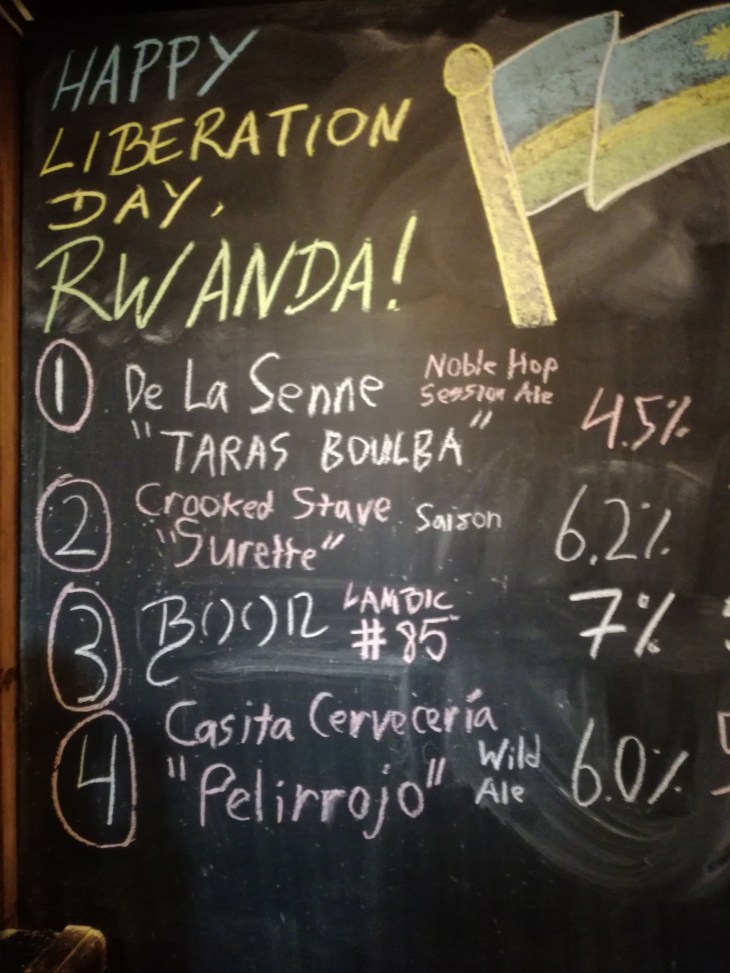 HAPPY
LIBERATION
DAY,
RWANDA!
1 De La Senne Noble Hop
Session Ale 4.5%
"TARAS BOULBA"
2 Crooked Stave Saison 6.2%
"Surette"
3 BOON LAMBIC 7%
#85
4 Casita Cervecería
"Pelirrojo" Wild
Ale 6.0%